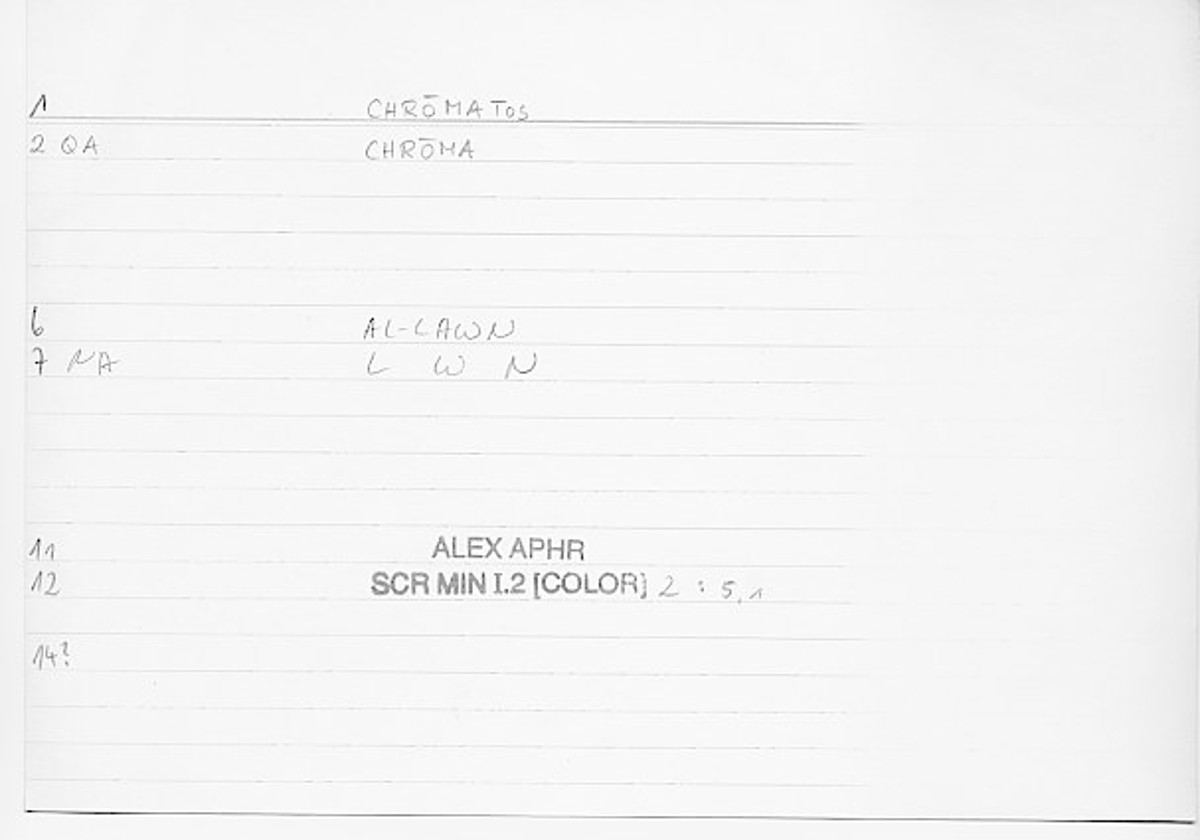 1 CHRŌMATOS
2 QA CHRŌMA
6 AL-LAWN
7 NA L W N
11 ALEX APHR
12 SCR MIN I.2 [COLOR] 2 : 5,1
14?